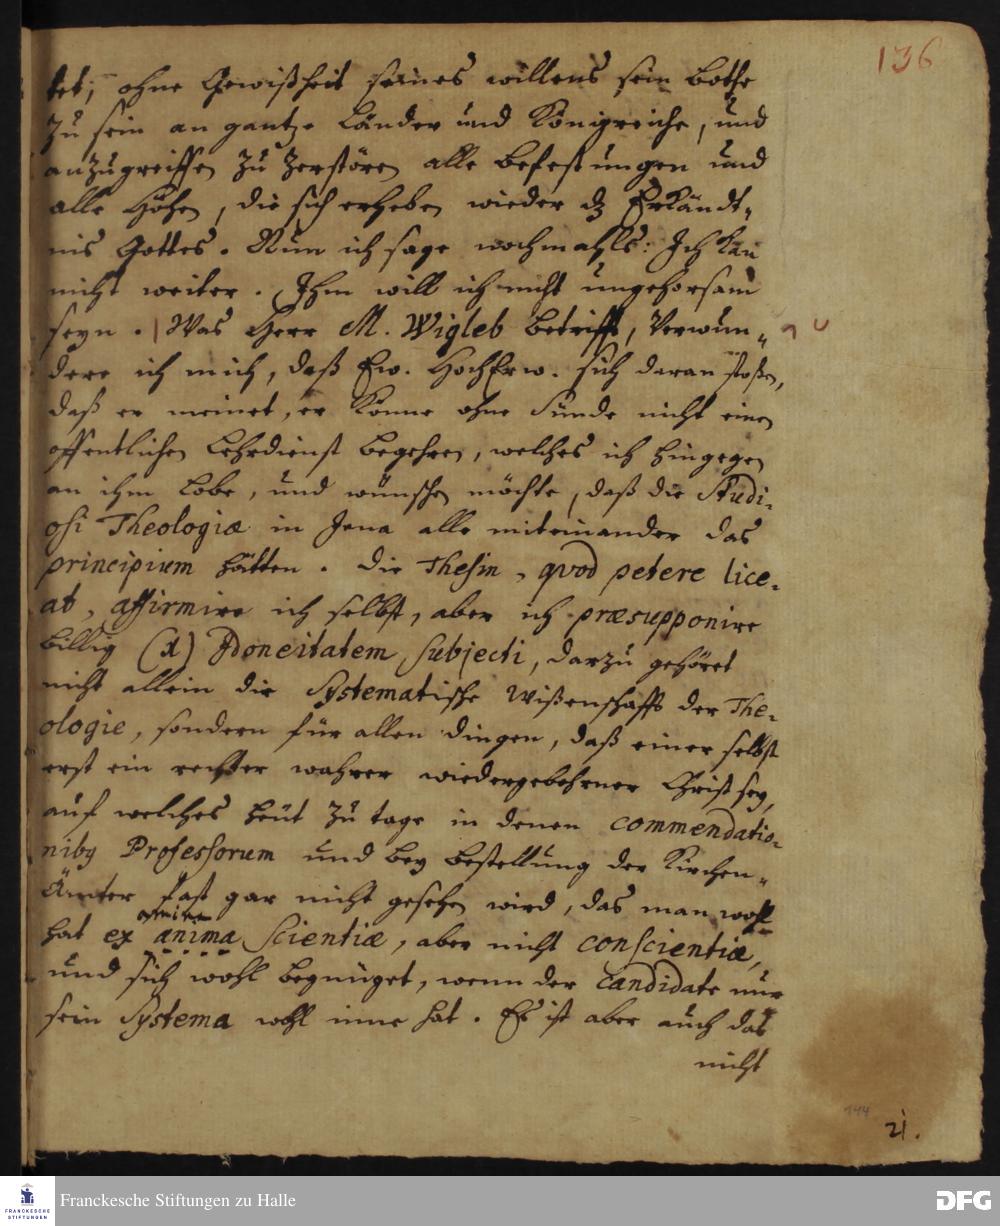 136
tet, ohne Gewißheit seines willens sein Bothe
zu sein an gantze Länder und Königreiche, und
anzugreiffen zu zerstören alle Befestungen und
alle Höhen, die sich erheben wieder dz Erkändt„
nis Gottes. Nun ich sage nochmahls: Ich kan
nicht weiter. Ihm will ich nicht ungehorsam
seyn. | Was Herr M. Wigleb betrifft, verwun„
dere ich mich, daß Ew. HochErw. sich daran stoßen,
daß er meinet, er könne ohne Sünde nicht einen
offentlichen Lehrdienst begehren, welches ich hingegen
an ihm lobe, und wünschen möchte, daß die Studi-
osi Theologiæ in Jena alle miteinander das
principium hätten. Die Thesin, qvod petere lice-
at, affirmire ich selbst, aber ich præsupponire
billig (α) Idoneitatem Subjecti, darzu gehöret
nicht allein die Systematische Wißenschafft der The-
ologie, sondern für allen dingen, daß einer selbst
erst ein rechter wahrer wiedergebohrner Christ sey,
auf welches heut zu tage in denen commendatio-
niby Professorum und bey bestellung der Kirchen-„
Ämter fast gar nicht gesehen wird, das man wohl
hat ex anima Scientiæ, aber nicht conscientiæ,
und sich wohl begnüget, wenn der Candidate nur
sein Systema wohl inne hat. Es ist aber auch das
nicht
144
21.
FRANCKESCHE
STIFTUNGEN
Franckesche Stiftungen zu Halle
DFG